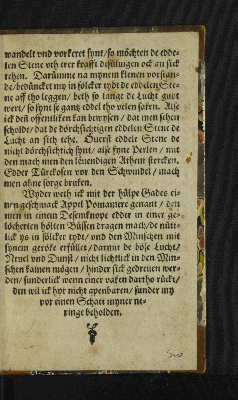 wandelt vnd vorkeret synt/ so möchten de edde-
len Stene vth erer krafft desüluigen ock an sick
tehen. Darümme na mynem klenen vorstan-
de/ bedüncket my in sölcker tydt de eddelen Ste-
ne aff tho leggen/ beth so lange de Lucht gudt
wert/ so synt se gantz eddel tho velen saken. Alse
ick den öffentliken kan bewysen/ dat men sehen
scholde/ dat de dörchsichtigen eddelen Stene de
Lucht an sick tehe. Duerst eddele Stene de
nicht dörchsichtich synt/ alse syne Perlen/ mit
den mach men den leuendigen Athem stercken.
Edder Türckosen vor den Schwindel/ mach
men ahne sorge bruken.
Wyder weth ick mit der hülpe Gades ei-
nen geschmack Appel Pomamere genant/ den
men in einem Desemknope edder in einer ge-
löcherten hölten Büssen dragen mach/ de nütt-
lick ys in sölcker tydt/ vnd den Minschen mit
synem geröke erfüllet/ darmit de böse Lucht/
Neuel vnd Dunst/ nicht lichtlick in den Min-
schen kamen mögen/ hinder sick gedreuen wer-
den/ sunderlick wenn einer vaken dartho rückt/
den wil ick hyr nicht apenbaren/ sunder my
vor einen Schatt myner ne-
ringe beholden.